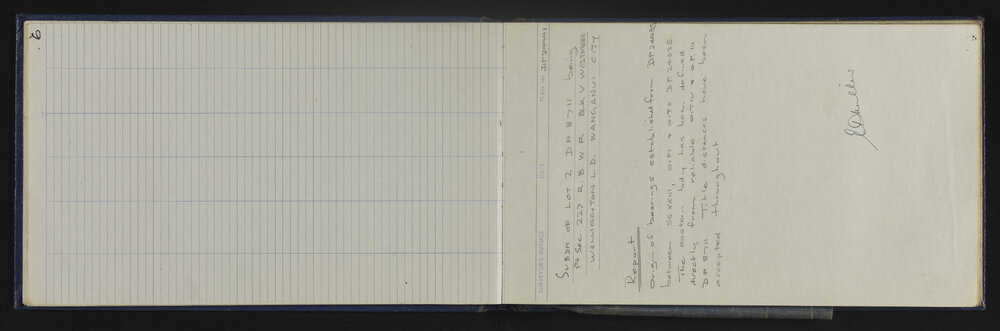 2
SURVEYOR'S INITIALS DATE PLAN No. DP 24401
SUBDN OF LOT 2 DP 8711 being
Pt Sec. 227 R.B.W.R. BLK V WESTMERE
WELLINGTON L.D. WANGANUI CITY
Report
Origin of bearings established from DP 24035
between SS XXIII, OIPI & OITS DP 24035
The eastern bdy has been defined
directly from reliable OITIV & OP III
DP 8711 Title distances have been
accepted throughout